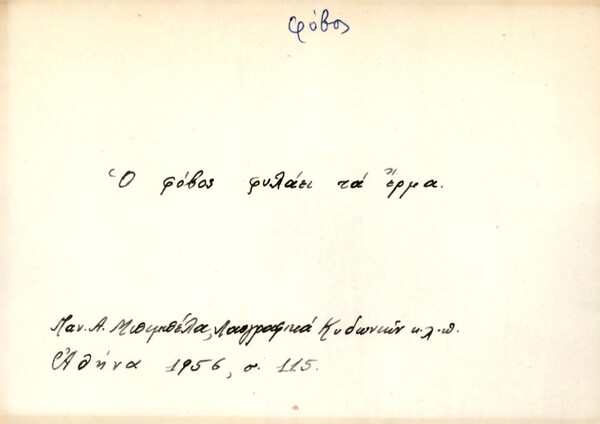 φόβος
Ὁ φόβος φυλάει τά ἔρμα.
Παν. Α. Μπιμπέλα, Λαογραφικά Κυδωνιῶν κ.λ.π.
Ἀθήνα 1956, σ. 115.